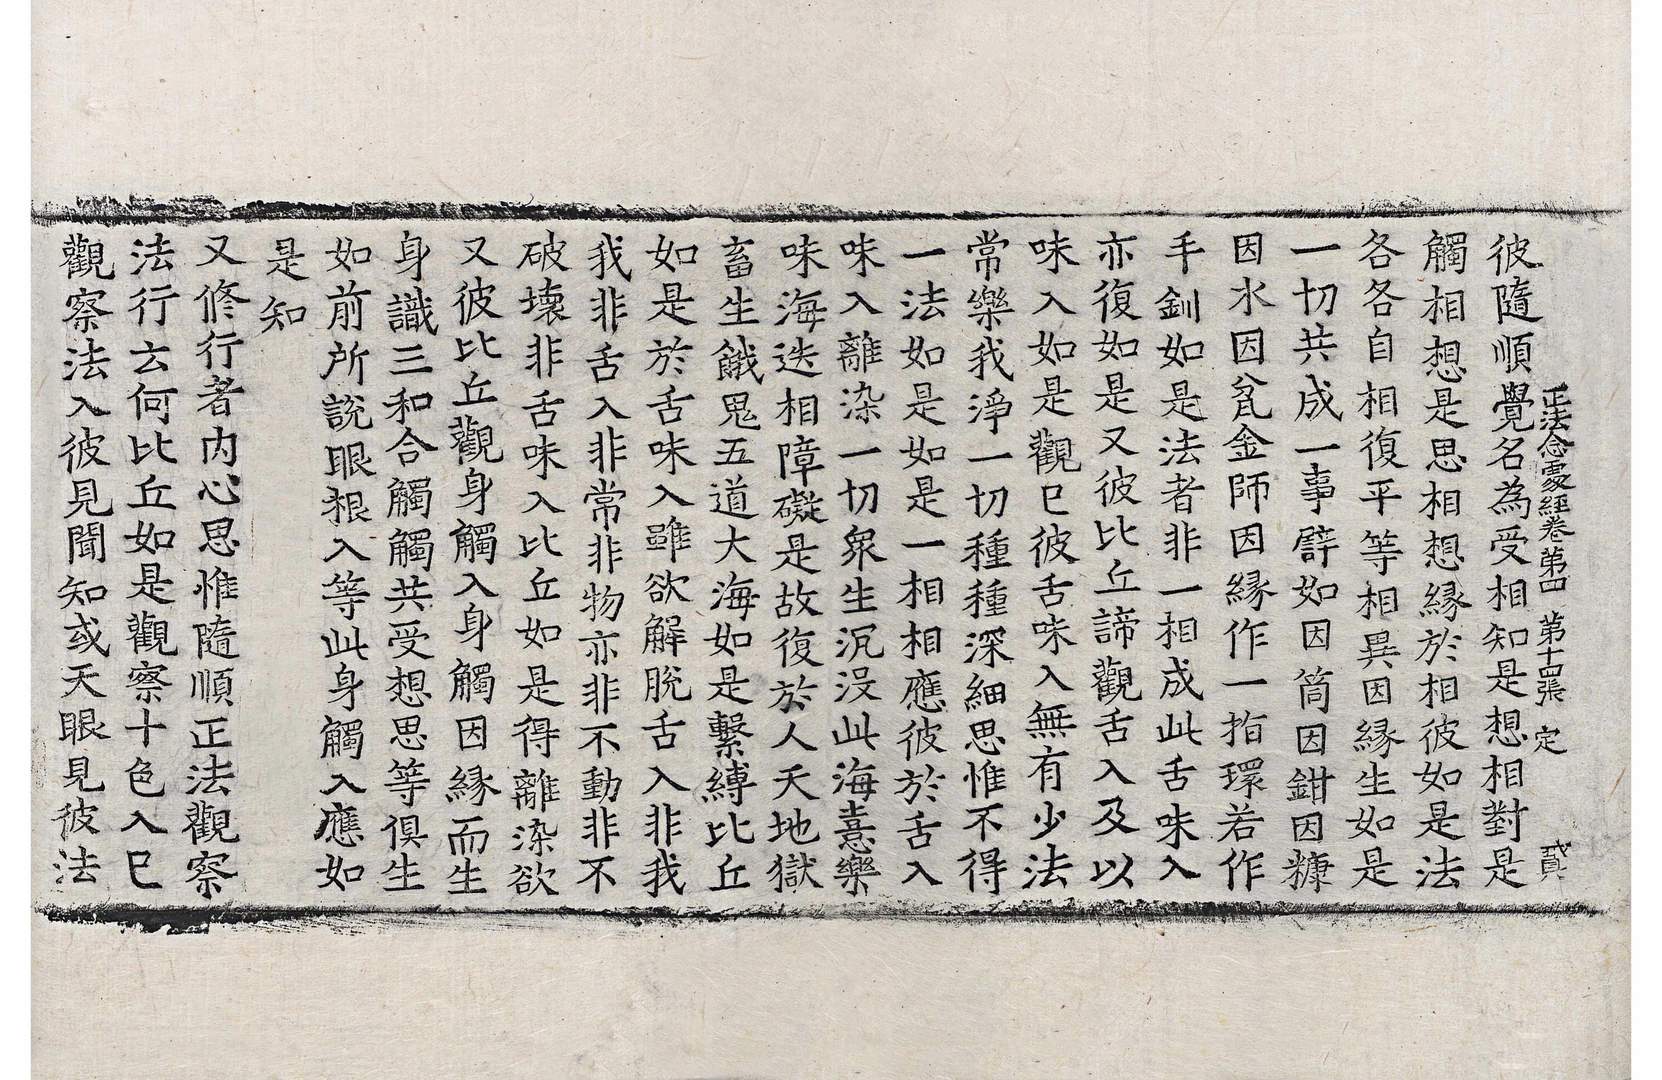 正法念處經卷第四 第十四張 定 貳
彼隨順覺名為受相知是想相對是
觸相想是思相想緣於相彼如是法
各各自相復平等相異因緣生如是
一切共成一事譬如因筒因鉗因糠
因水因瓮金師因緣作一指環若作
手釧如是法者非一相成此舌味入
亦復如是又彼比丘諦觀舌入及以
味入如是觀已彼舌味入無有少法
常樂我淨一切種種深細思惟不得
一法如是如是一相相應彼於舌入
味入離染一切衆生沉没此海憙樂
味海迭相障礙是故復於人天地獄
畜生餓鬼五道大海如是繫縛比丘
如是於舌味入雖欲解脫舌入非我
我非舌入非常非物亦非不動非不
破壞非舌味入比丘如是得離染欲
又彼比丘觀身觸入身觸因緣而生
身識三和合觸觸共受想思等俱生
如前所說眼根入等此身觸入應如
是知
又修行者內心思惟隨順正法觀察
法行云何比丘如是觀察十色入已
觀察法入彼見聞知或天眼見彼法